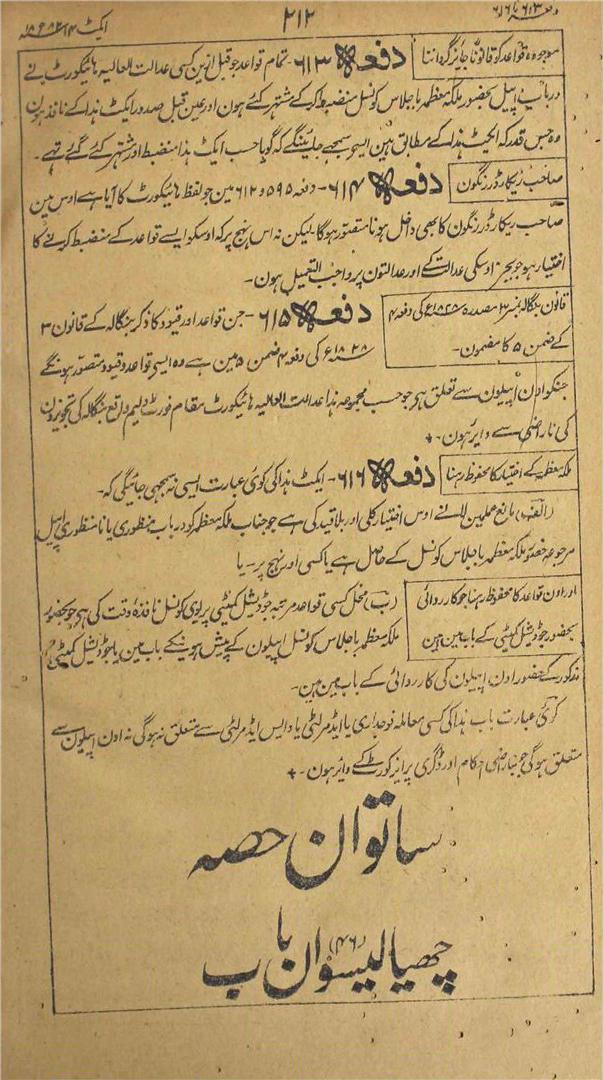 دفعہ ۶۱۳ تا ۶۱۶
۲۱۲
ایکٹ ۱۴ ۱۸۸۲ء
موجودہ قواعد کو قانوناً جائز گرداننا
دفعہ ۶۱۳- تمام قواعد جو قبل ازین کسی عدالت العالیہ ہائیکورٹ نے
درباب اپیل بحضور ملکہ معظمہ باجلاس کونسل منضبط کرکے مشتہر کئے ہون اور عین قبل صدور ایکٹ ہذا کے نافذ ہون
وہ جس قدر کہ ایکٹ ہذا کے مطابق ہین ایسی سمجھے جائینگے کہ گویا حسب ایکٹ ہذا منضبط اور مشتہر کئے گئے تہے۔
صاحب ریکارڈر رنگون
دفعہ ۶۱۴- دفعہ ۵۹۵ و ۶۱۲ مین جو لفظ ہائیکورٹ کا آیا ہے اوس مین
صاحب ریکارڈر رنگون کا بھی داخل ہونا متصور ہوگا لیکن نہ اس نہج پر کہ اوسکو ایسے قواعد کے منضبط کرنے کا
اختیار ہو جو بجز اوسکی عدالت کے اور عدالتون پر واجب التعمیل ہون۔
قانون بنگالہ نمبر ۳ مصدرہ ۱۸۲۸ء کی دفعہ ۴
کے ضمن ۵ کا مضمون۔
دفعہ ۶۱۵- جن قواعد اور قیود کا ذکر بنگالہ کے قانون ۳
۱۸۲۸ء کی دفعہ ۴ ضمن ۵ مین ہے وہ ایسی قواعد و قیود متصور ہونگے
جنکو اون اپیلون سے تعلق ہو جو حسب مجموعہ ہذا عدالت العالیہ ہائیکورٹ مقام فورٹ ولیم واقع بنگالہ کی تجویزون
کی ناراضی سے دایر ہون۔+
ملکہ معظمہ کے اختیار کا محفوظ رہنا
دفعہ ۶۱۶- ایکٹ ہذا کی کوئی عبارت ایسی نہ سمجھی جائیگی کہ۔
(الف) مانع عملمین لانے اوس اختیار کلی اور بلا قید کی ہے جو جناب ملکہ معظمہ کو درباب منظوری یا نامنظوری اپیل
مرجوعہ حضور ملکہ معظمہ باجلاس کونسل کے حاصل ہے یا کسی اور نہج پر۔ یا
اور اون قواعد کا محفوظ رہنا جو کارروائی
بحضور جوڈیشل کمیٹی کے باب مین ہین
(ب) مخل کسی قواعد مرتبہ جوڈیشل کمیٹی پریوی کونسل نافذہ وقت کی ہی جو بحضور
ملکہ معظمہ باجلاس کونسل اپیلون کے پیش ہونیکے باب مین یا جوڈیشل کمیٹی
مذکور کے حضور اون اپیلون کی کارروائی کے باب مین ہین۔
کوئی عبارت باب ہذا کی کسی معاملہ فوجداری یا ایڈمرلٹی یا وایس ایڈمرلٹی سے متعلق نہ ہوگی نہ اون اپیلون سے
متعلق ہوگی جو بناراضی احکام اور ڈگری پرایز کورٹ کے دایر ہون۔+
ساتوان حصہ
چھیالیسوان باب (۴۶)